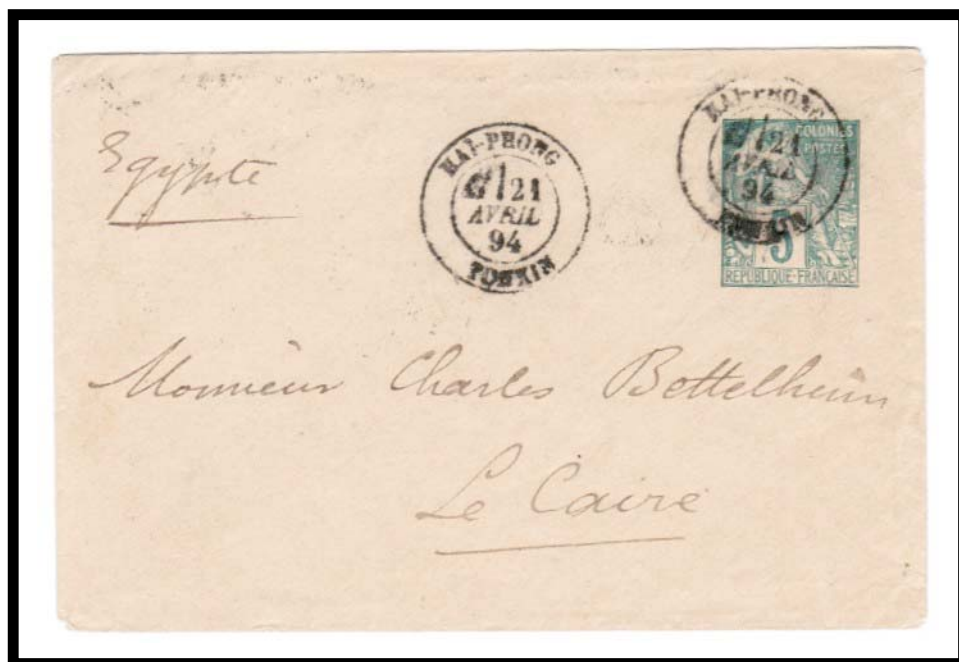 Egypte
HAI-PHONG
21
AVRIL
94
TONKIN
HAI-PHONG
21
AVRIL
94
TONKIN
COLONIES
POSTES
5
REPUBLIQUE-FRANCAISE
Monsieur Charles Bettelheim
Le Caire